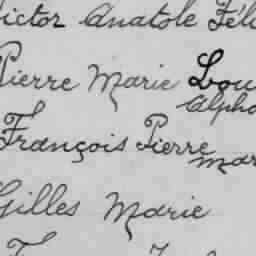 Victor Anatole Féli
Pierre Marie Lou
Alpho
François Pierre
Mar
Gilles Marie